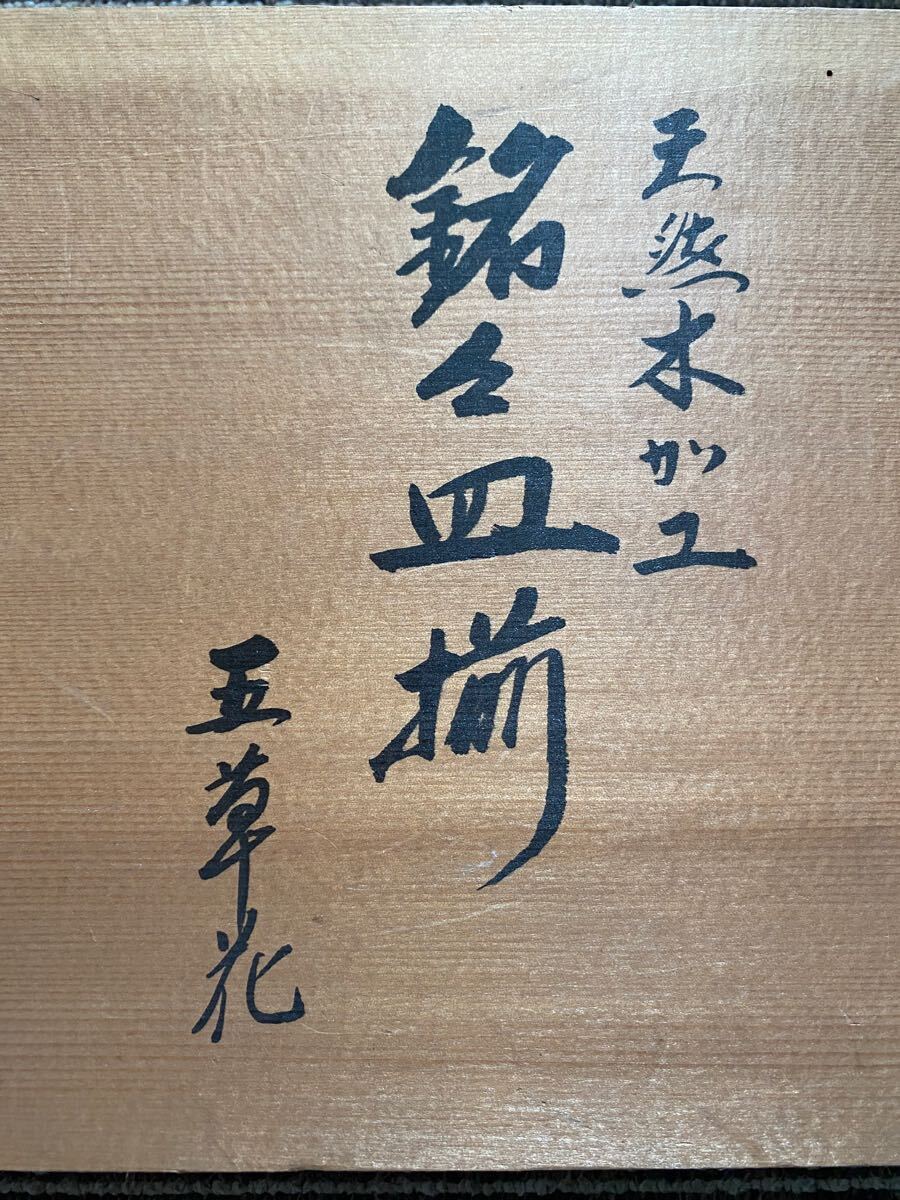 天然木加工
銘々皿揃
五草花